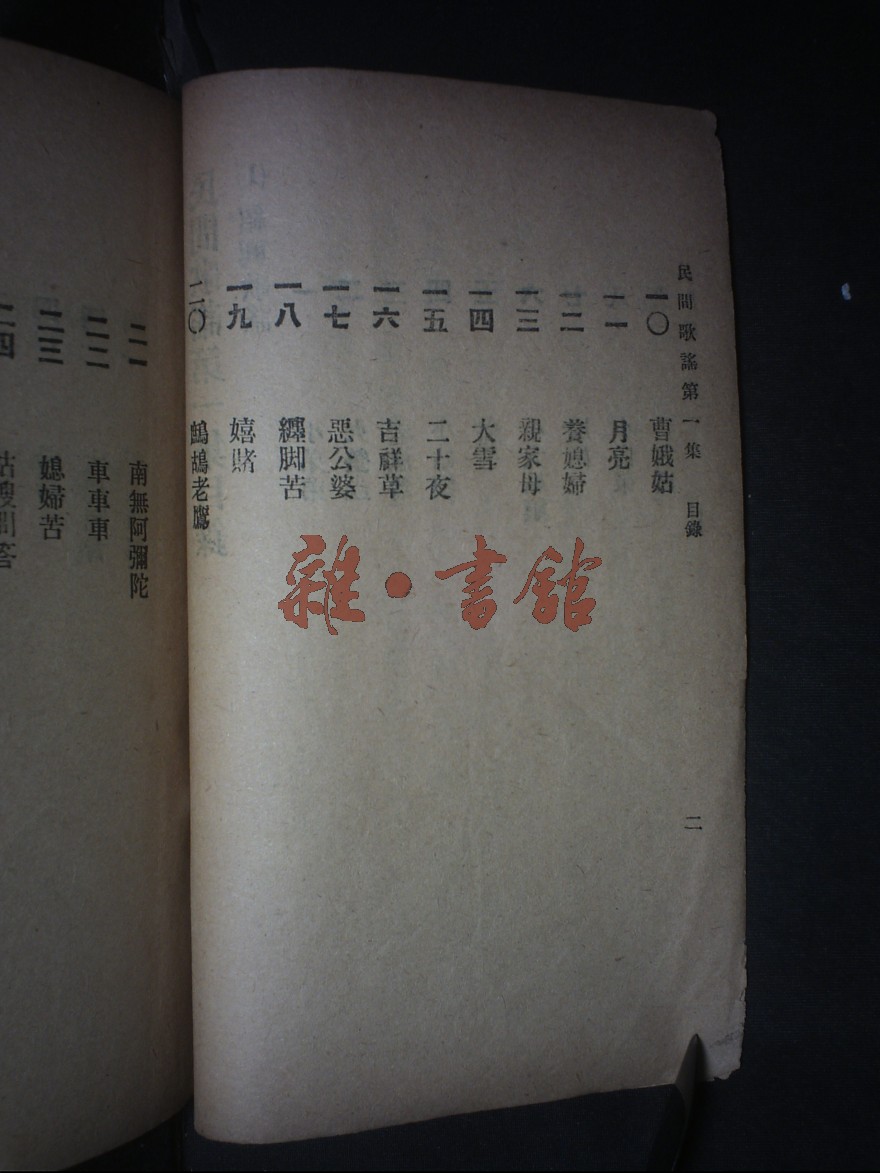 民間歌謠第一集 目錄 二
一〇 曹娥姑
一一 月亮
一二 養媳婦
一三 親家母
一四 大雪
一五 二十夜
一六 吉祥草
一七 惡公婆
一八 纏脚苦
一九 嬉賭
二〇 鷓鴣老鷹
二一 南無阿彌陀
二二 車車車
二三 媳婦苦
二四 姑嫂問答
雜·書館